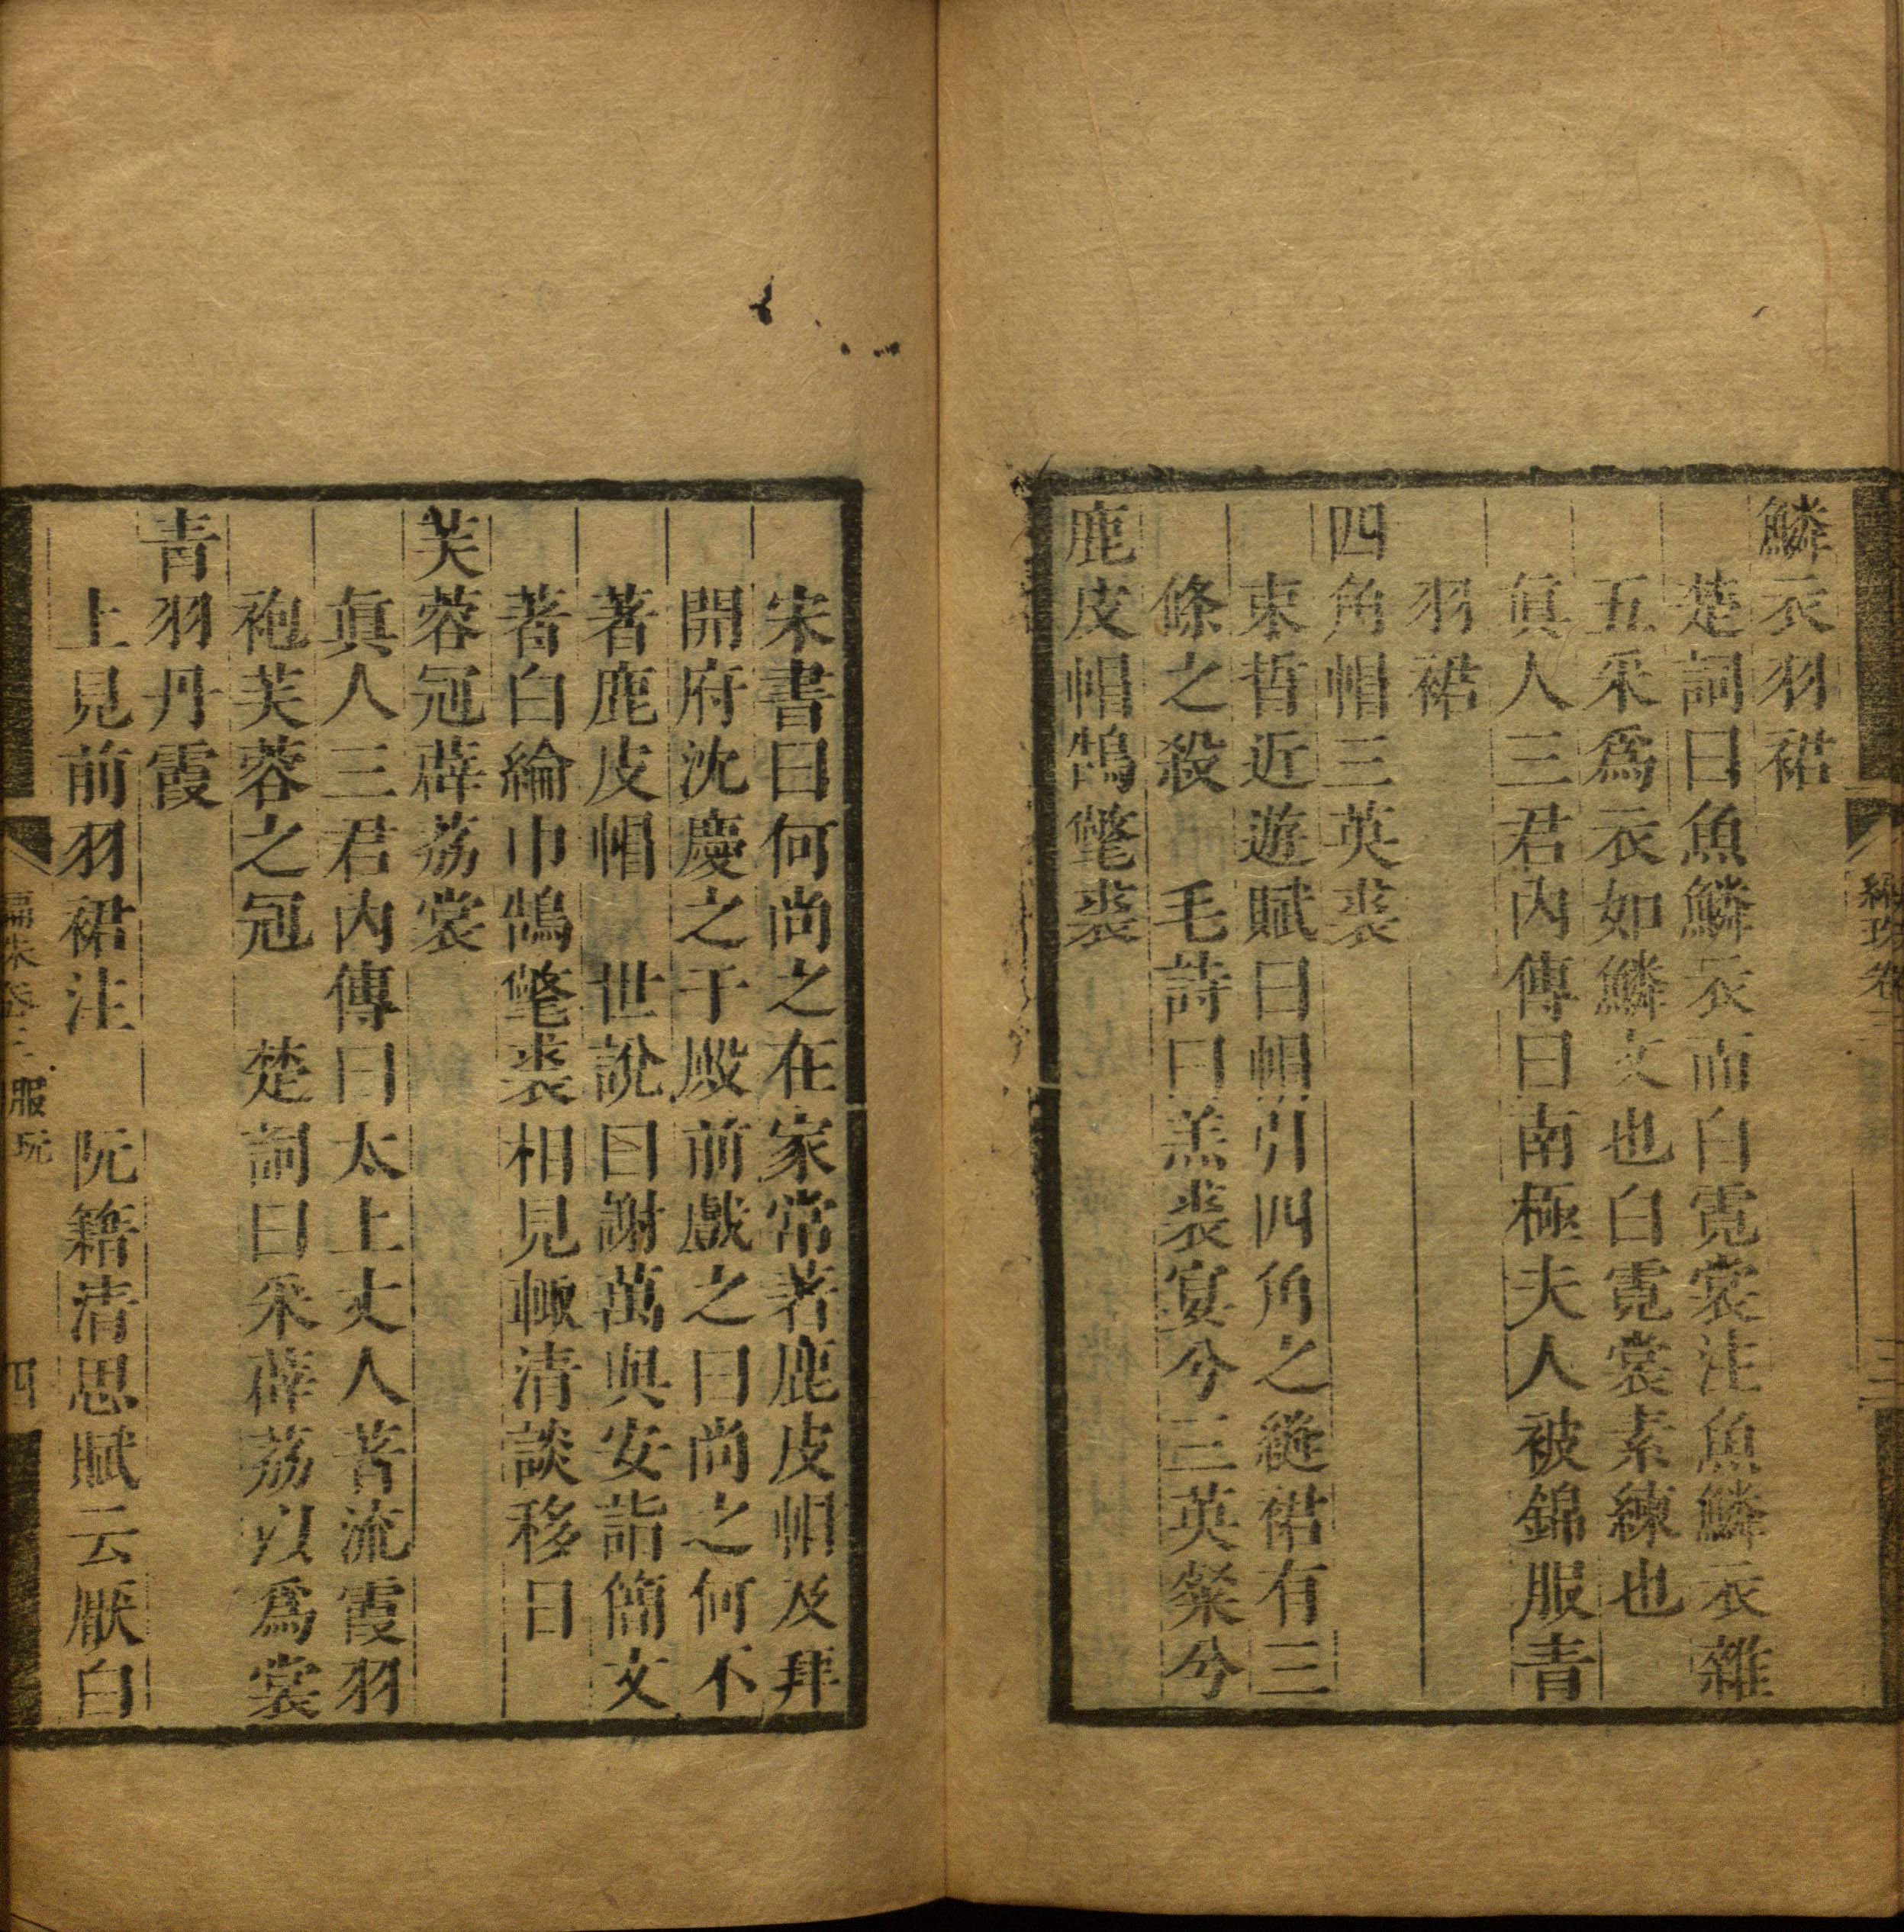 鱗衣羽裙
楚詞曰魚鱗衣而白霓裳注魚鱗衣雜
五采爲衣如鱗文也白霓裳素練也
眞人三君内傳曰南極夫人被錦服青
羽裙
四角帽三英裘
束晢近遊賦曰帽引四角之縫裙有三
條之殺　毛詩曰羔裘宴兮三英粲兮
鹿皮帽鵠氅裘
宋書曰何尚之在家常著鹿皮帽及拜
開府沈慶之于殿前戲之曰尚之何不
著鹿皮帽　世說曰謝萬與安詣簡文
著白綸巾鵠氅裘相見輙清談移日
芙蓉冠薜荔裳
眞人三君内傳曰太上丈人著流霞羽
袍芙蓉之冠　楚詞曰采薜荔以爲裳
青羽丹霞
上見前羽裙注　阮籍清思賦云厭白
編珠卷三 服玩
四
編珠卷三
三